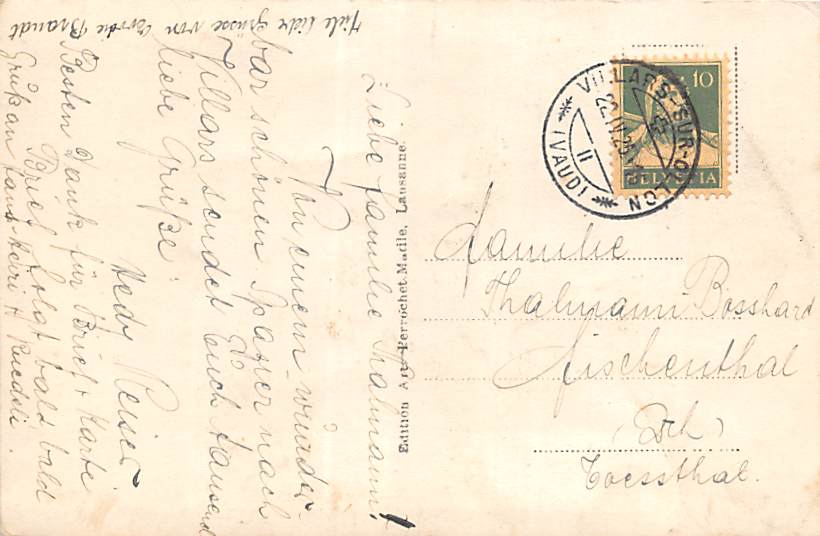 Liebe Familie Thalmann!
Von einem wunder-
bar schönen Spazier nach
Villars sendet Euch tausend
liebe Grüße
Hedy
Besten Dank für Brief + Karte
Brief folgt bald, bald
Gruß an Hans-Heiri + Ruedeli.
Viele liebe Grüsse von Cordie Brandt
Edition A. Perrochet-Matile, Lausanne.
VILLARS-SUR-OLLON
(VAUD)
II
10
HELVETIA
Familie
Thalmann-Bosshard
Fischenthal
(Zch)
Toessthal.